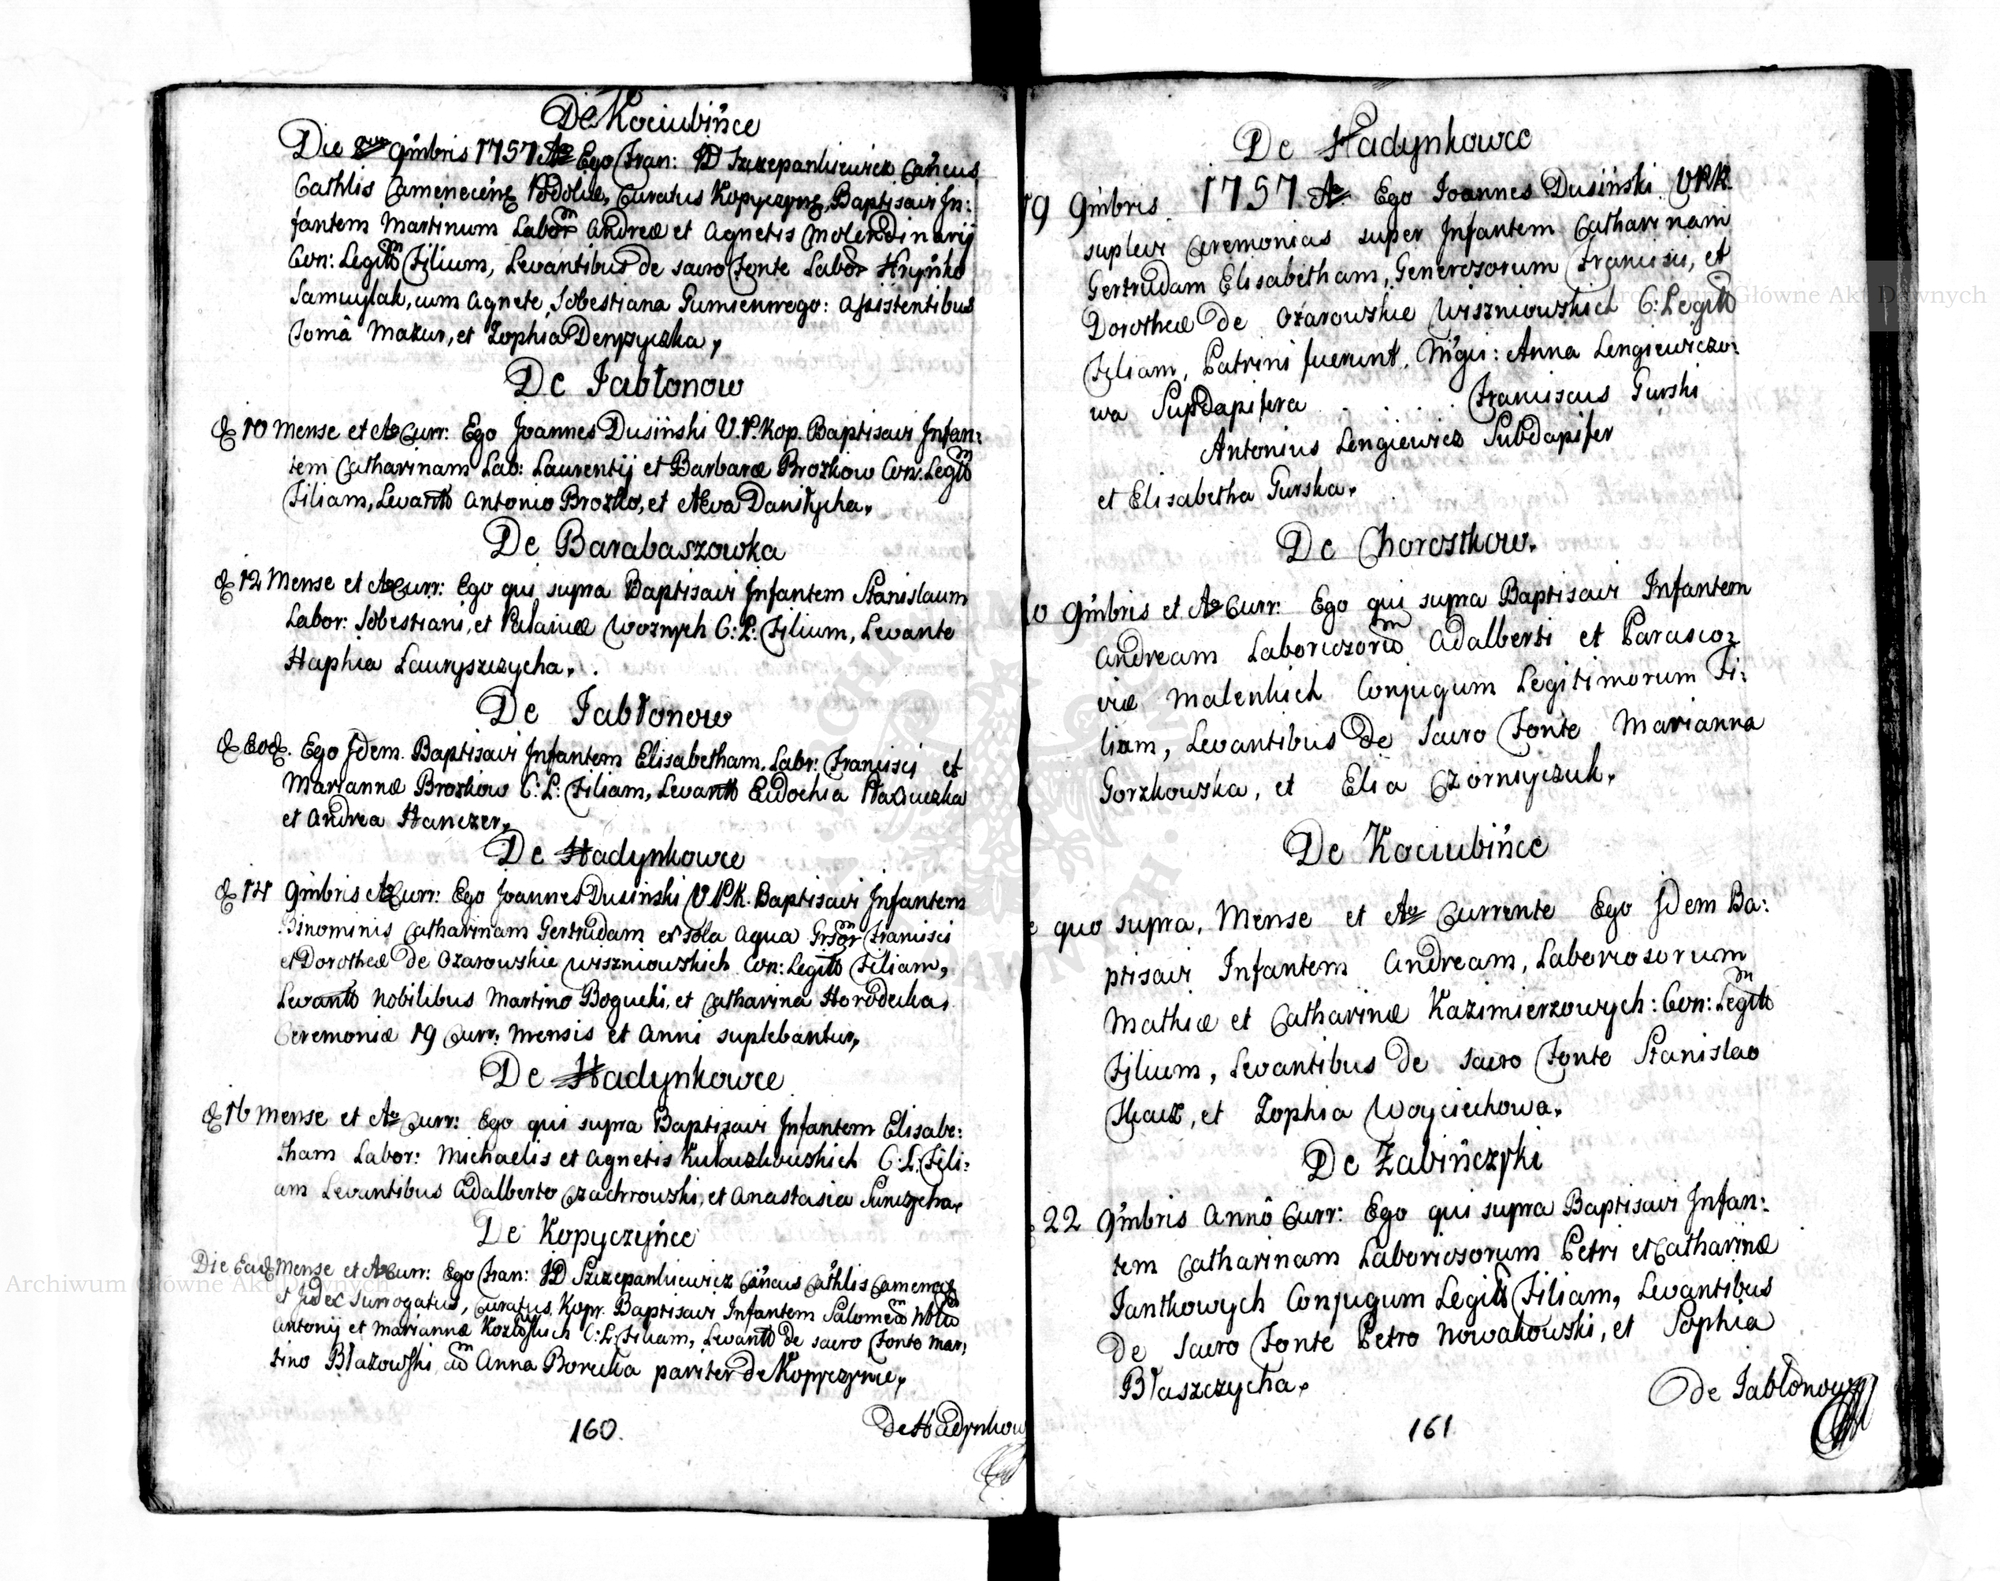 De Kociubińce
Die 8va 9mbris 1757 Ao Ego Fran: D Szczepankiewicz Cañcus
Cathlis Camenecenẽ Podoliæ, Curatus Kopyczynẽ, Baptisavi In:
fantem Martinum Labor Andreæ et Agnetis Molendinarij
Con: Legitto Filium, Levantibus de sacro Fonte Labor Hryńko
Samuylak, cum Agnete Sobestiana Gumiennego: Assistentibus
Toma Mazur, et Zophia
De Jabłonow
d 10 Mense et Ao Curr: Ego Joannes Dusiński V.P.Kop. Baptisavi Infan:
tem Catharinam Lab: Laurentij et Barbaræ Brozkow Con: Legitto
Filiam, Levantto Antonio Brozko, et Ewa Daniłycha.
De Barabaszowka
d 12 Mense et Ao Curr: Ego qui supra Baptisavi Infantem Stanislaum
Labor: Sobestiani, et Pałaiuæ Woznych C: L: Filium, Levante
Haphia Lauryszczycha.
De Jabłonow
d Eod. Ego Idem Baptisavi Infantem Elisabetham, Labr: Francisci et
Mariannæ Brozkow C: L: Filiam, Levantto Eudochia
et Andrea Hanczer.
De Hadynkowce
d 14 9mbris Ao Curr: Ego Joannes Dusinski V P.K. Baptisavi Infantem
Binominis Catharinam Gertrudam ex sola Aqua Grsor Francisci
et Dorotheæ de Ozarowskie Wiszniowskich Con: Legitto Filiam,
Levantto Nobilibus Martino Bogucki, et Catharina Horodecka.
Ceremoniæ 19 Curr: Mensis et Anni suplebantur.
De Hadynkowce
d 16 Mense et Ao Curr: Ego qui supra Baptisavi Infantem Elisabe:
tham Labor: Michaelis et Agnetis Kułaczkowskich C: L: Fili:
am Levantibus Adalberto Czachrowski, et Anastasia
De Kopyczyńce
Die Ead Mense et Ao Curr: Ego Fran: D Szczepankiewicz Cañcus Cathlis Camenecẽ
et Judex Surrogatus, Curatus Kopr. Baptisavi Infantem Salomeã Nbliũ
Antonij et Mariannæ Kozłoskich C: L: Filiam, Levantto de sacro Fonte Mar,
tino Błazowski, cũ Anna Borucka pariter de Kopyczynie.
160.
de Hadynkow
De Hadynkowce
19 9mbris 1757 Ao Ego Joannes Dusiński VPK
suplevi Ceremonias super Infantem Catharinam
Gertrudam Elisabetham, Generosorum Francisci, et
Dorotheæ de Ożarowskie Wiszniowskich C: Legitto
Filiam, Patrini fuerunt, Mgci: Anna Lengiewiczo:
wa Subdapifera . . . . Franciscus Gurski
Antonius Lengiewicz Subdapifer
et Elisabetha Gurska.
De Chorostkow.
0 9mbris et Ao Curr: Ego qui supra Baptisavi Infantem
Andream Laboriosorũ Adalberti et Parasco:
viæ Malenkich Conjugum Legitimorum Fi:
lium, Levantibus de Sacro Fonte Marianna
Gorzkowska, et Elia Czornyczuk.
De Kociubińce
e quo supra, Mense et Ao Currente Ego Idem Ba:
ptisavi Infantem Andream, Laboriosorum
Mathiæ et Catharinæ Kazimierzowych: Con: Legitto
Filium, Levantibus de sacro Fonte Stanislao
et Zophia Woyciechowa.
De Żabińczyki
22 9mbris Annô Curr: Ego qui supra Baptisavi Infan:
tem Catharinam Laboriosorum Petri et Catharinæ
Jantkowych Conjugum Legitto Filiam, Levantibus
de Sacro Fonte Petro Nowakowski, et Sophia
Błaszczycha.
de Jabłonow
161
Archiwum Główne Akt Dawnych
Archiwum Główne Akt Dawnych